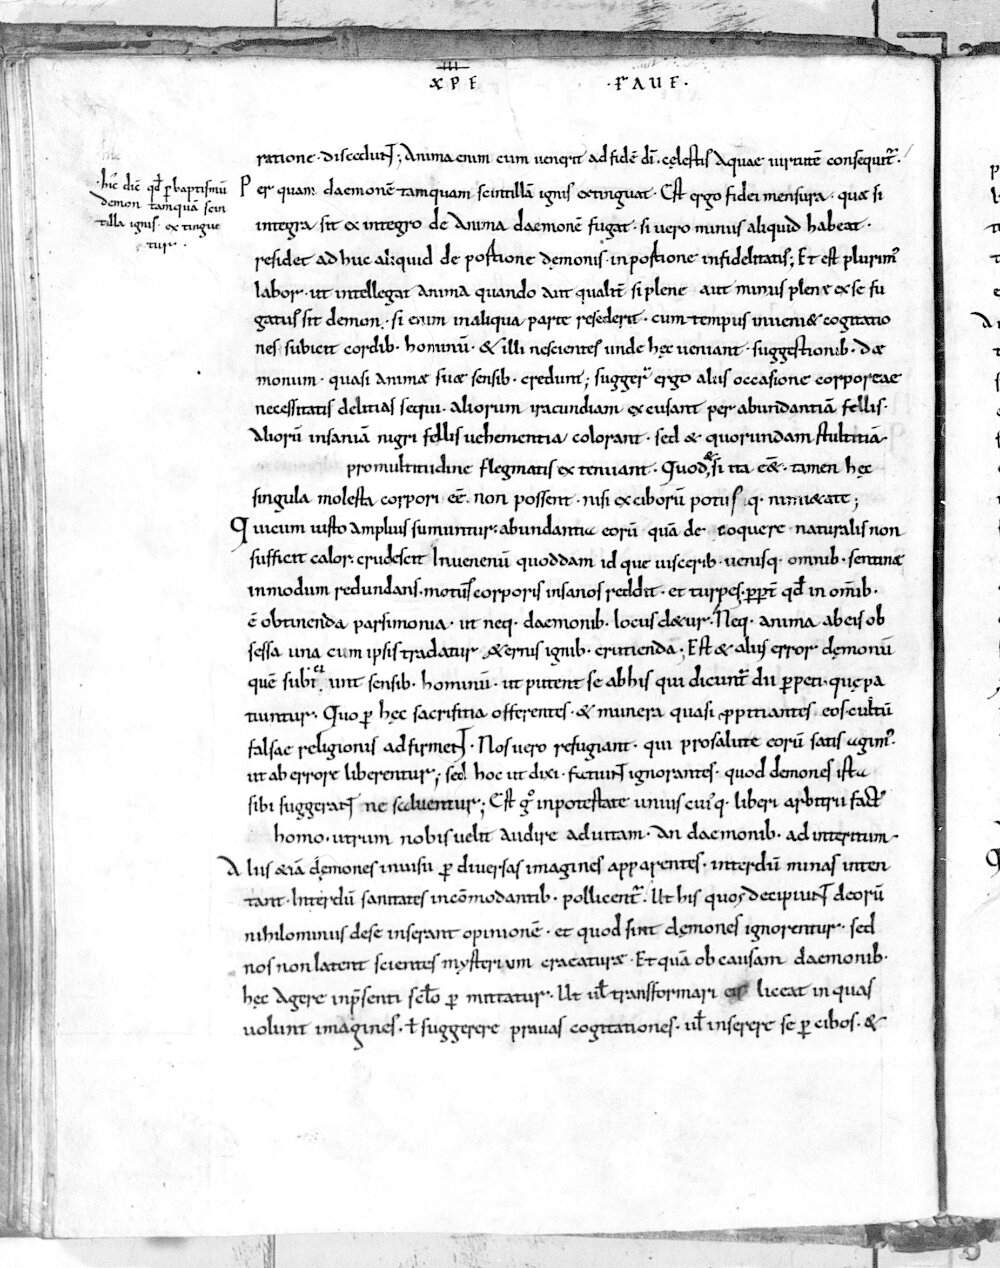 IIII
XPE · FAUE ·
ratione · discedunt; Anima enim cum uenerit ad fidē dī. cęlestis aquae uirtutē consequit᷑.
· hic diē qđ ꝑ baptismū
demon tamquā scin
tilla ignis · extingue
tur ·
Per quam daemonē tamquam scintillā ignis extinguat · Est ergo fidei mensura · quæ si
integra sit ex integro de anima daemonē fugat · si uero minus aliquid habeat ·
residet ad huc aliquid de postione demonis · in postione infidelitatis; Et est plurim᷒
labor · ut intellegat anima quando aut qualit̄ si plene aut minus plene ex se fu
gatus sit demon · si enim in aliqua parte resederit · cum tempus inueni& cogitatio
nes subicit cordib · hominū · & illi nescientes unde hęc ueniant · suggestionib · dæ
monum · quasi animæ suæ sensib · credunt; sugger᷑ ergo aliis occasione corporeae
necessitatis delitias sequi · aliorum iracundiam excusant per abundantiā fellis ·
aliorū insaniā nigri fellis uehementia colorant · sed & quorundam stultitiā
pro multitudine flegmatis extenuant · Quod & si ita e&̄ · tamen hęc
singula molesta corpori eē · non possent · nisi ex ciborū potus q · nimietate;
Qui cum iusto amplius sumuntur · abundantia eorū quā de coquere naturalis non
sufficit calor · crudescit In uenenū quoddam id que uiscerib · uenisq · omnib · sentinæ
in modum redundans · motus corporis insanos reddit · et turpes · ꝓpt̄ qđ in om̄ib ·
ē obtinenda parsimonia · ut neq · daemonib · locus d&ur · Neq · anima ab eis ob
sessa una cum ipsis tradatur &ernis ignib · crucienda · Est & alius error dęmonū
quē subi unt sensib · hominū · ut putent se ab his qui dicunt᷑ dii ꝑpeti · quę pa
tiuntur · Quo ꝑ hęc sacrifitia offerentes · & munera quasi ꝓpitiantes eos cultū
falsae religionis ad firment · Nos uero refugiant · qui pro salute eorū satis agim᷒ ·
ut ab errore liberentur; sed hoc ut dixi · faciunt ignorantes · quod demones ista
sibi suggerant ne saluentur; Est gͦ in potestate unius cui᷒q · liberi arbitrii fact᷒
homo · utrum nobis uelit audire ad uitam · an daemonib · ad interitum ·
Aliis &iā dęmones inuisii ꝑ diuersas imagines apparentes · interdū minas inten
tant · Interdū sanitates incōmodantib · pollicent᷑. Ut his quos decipiunt deorū
nihilominus de se inserant opinionē · et quod sint dęmones ignorentur · sed
nos non latent scientes mysterium creaturæ · Et quā ob causam daemonib ·
hęc agere in p̄senti sc̄lo ꝑ mittatur · Ut uł transformari eis liceat in quas
uolunt imagines · ł suggerere prauas cogitationes · uł inserere se ꝑ cibos · &